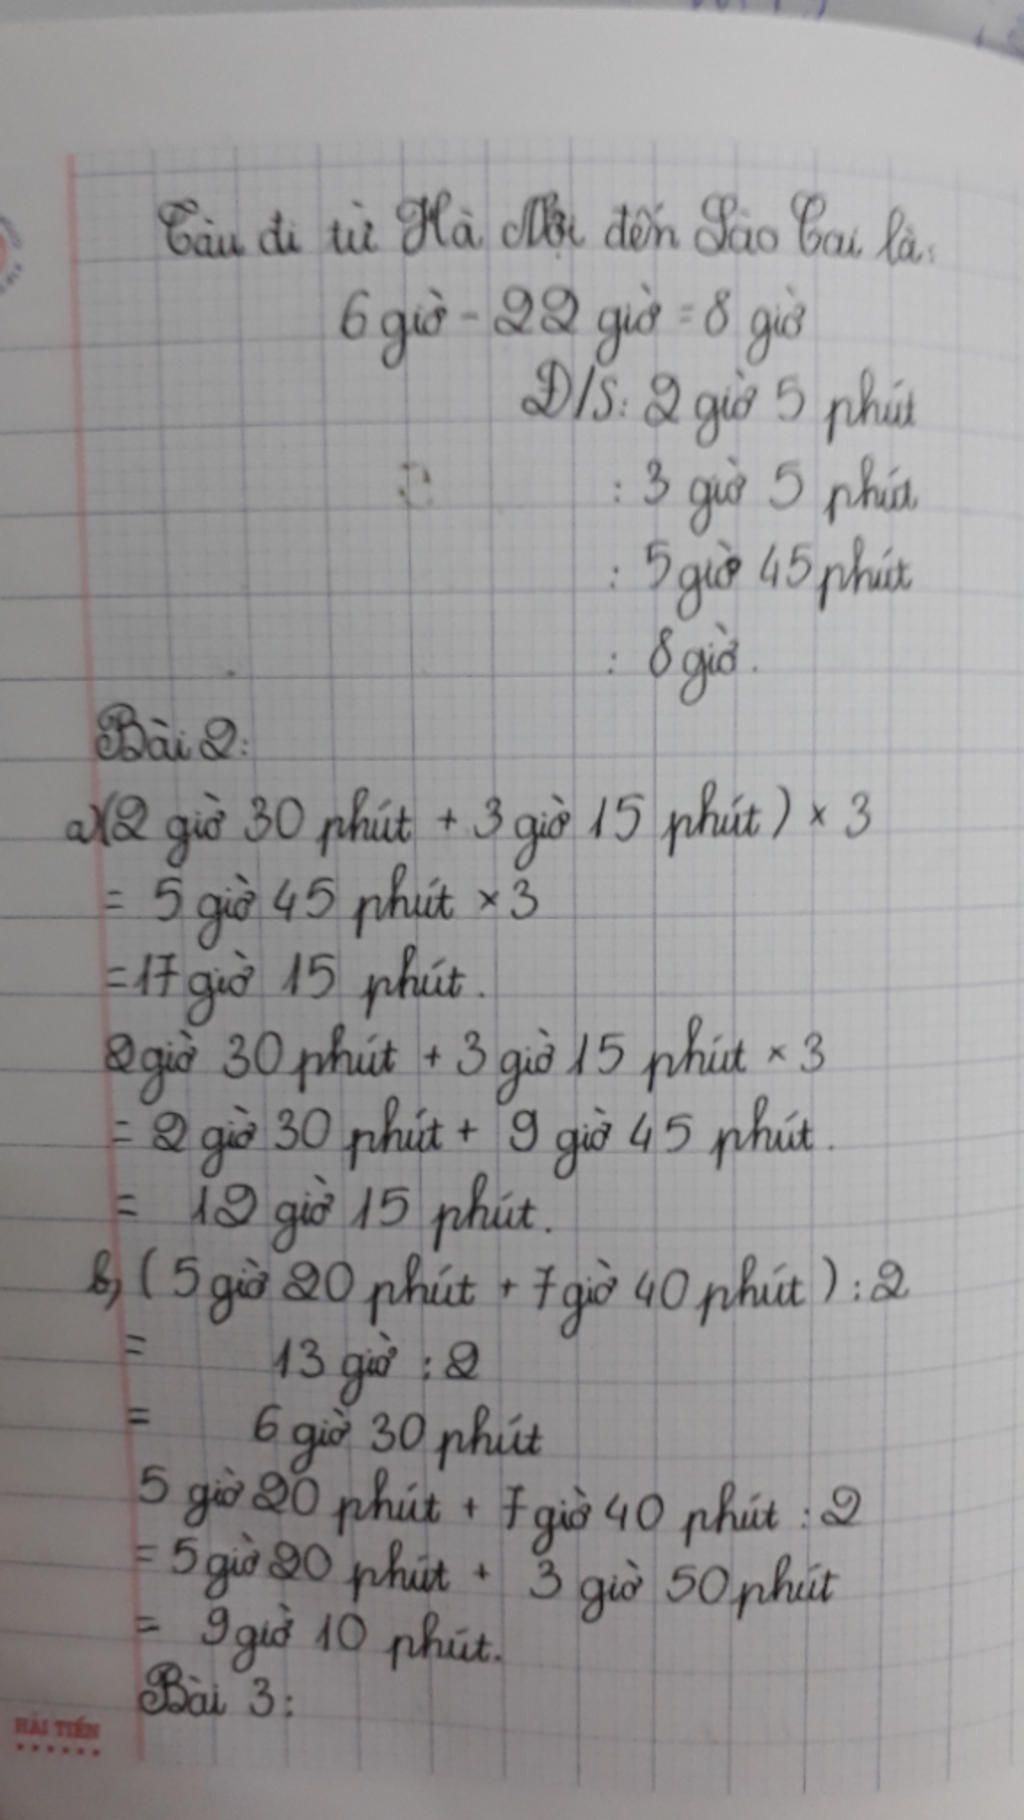 Tàu đi từ Hà Nội đến Lào Cai là:
6 giờ - 22 giờ = 8 giờ
Đ/S: 2 giờ 5 phút
: 3 giờ 5 phút
: 5 giờ 45 phút
: 8 giờ.
Bài 2:
a)(2 giờ 30 phút + 3 giờ 15 phút) × 3
= 5 giờ 45 phút × 3
= 17 giờ 15 phút.
2 giờ 30 phút + 3 giờ 15 phút × 3
= 2 giờ 30 phút + 9 giờ 45 phút.
= 12 giờ 15 phút.
b, (5 giờ 20 phút + 7 giờ 40 phút) : 2
= 13 giờ : 2
= 6 giờ 30 phút
5 giờ 20 phút + 7 giờ 40 phút : 2
= 5 giờ 20 phút + 3 giờ 50 phút
= 9 giờ 10 phút.
Bài 3:
HẢI TIẾN